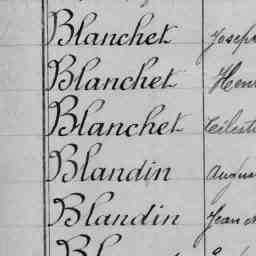 Blanchet Joseph
Blanchet Henri
Blanchet Célesti
Blandin Augus
Blandin Jean